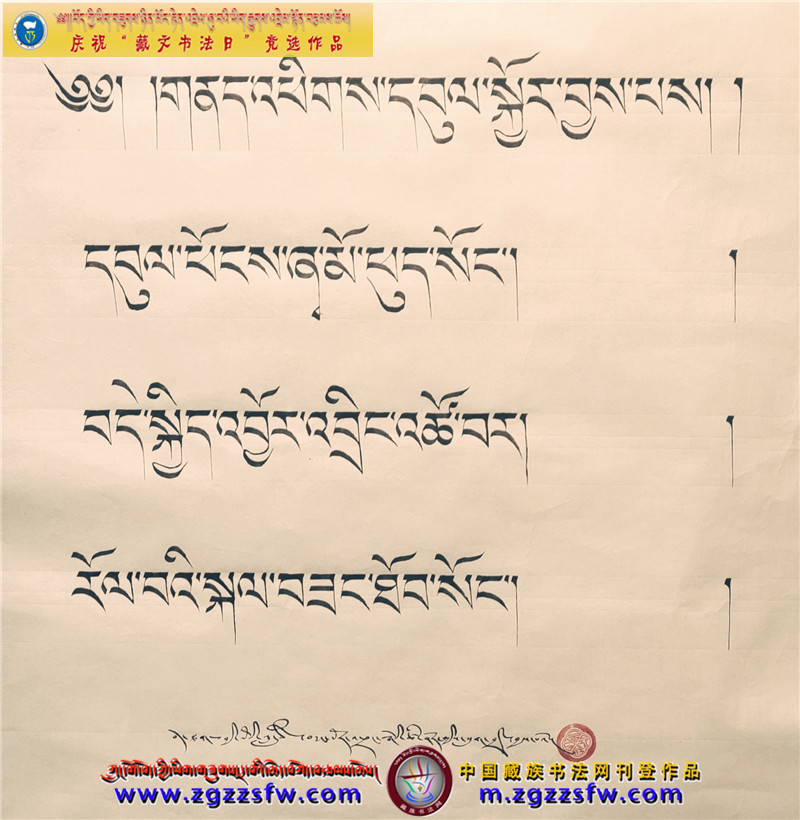 庆祝“藏文书法日”竞选作品
༄༅། །གནད་འཕིགས་དབུལ་སྐྱོར་བྱས་པས། །
དབུལ་ཕོངས་ཞྭ་མོ་ཕུད་སོང་། །
བདེ་སྐྱིད་འབྱོར་འབྲིང་འཚོ་བར། །
རོལ་བའི་སྐལ་བཟང་ཐོབ་སོང་། །
中国藏族书法网刊登作品
www.zgzzsfw.com m.zgzzsfw.com